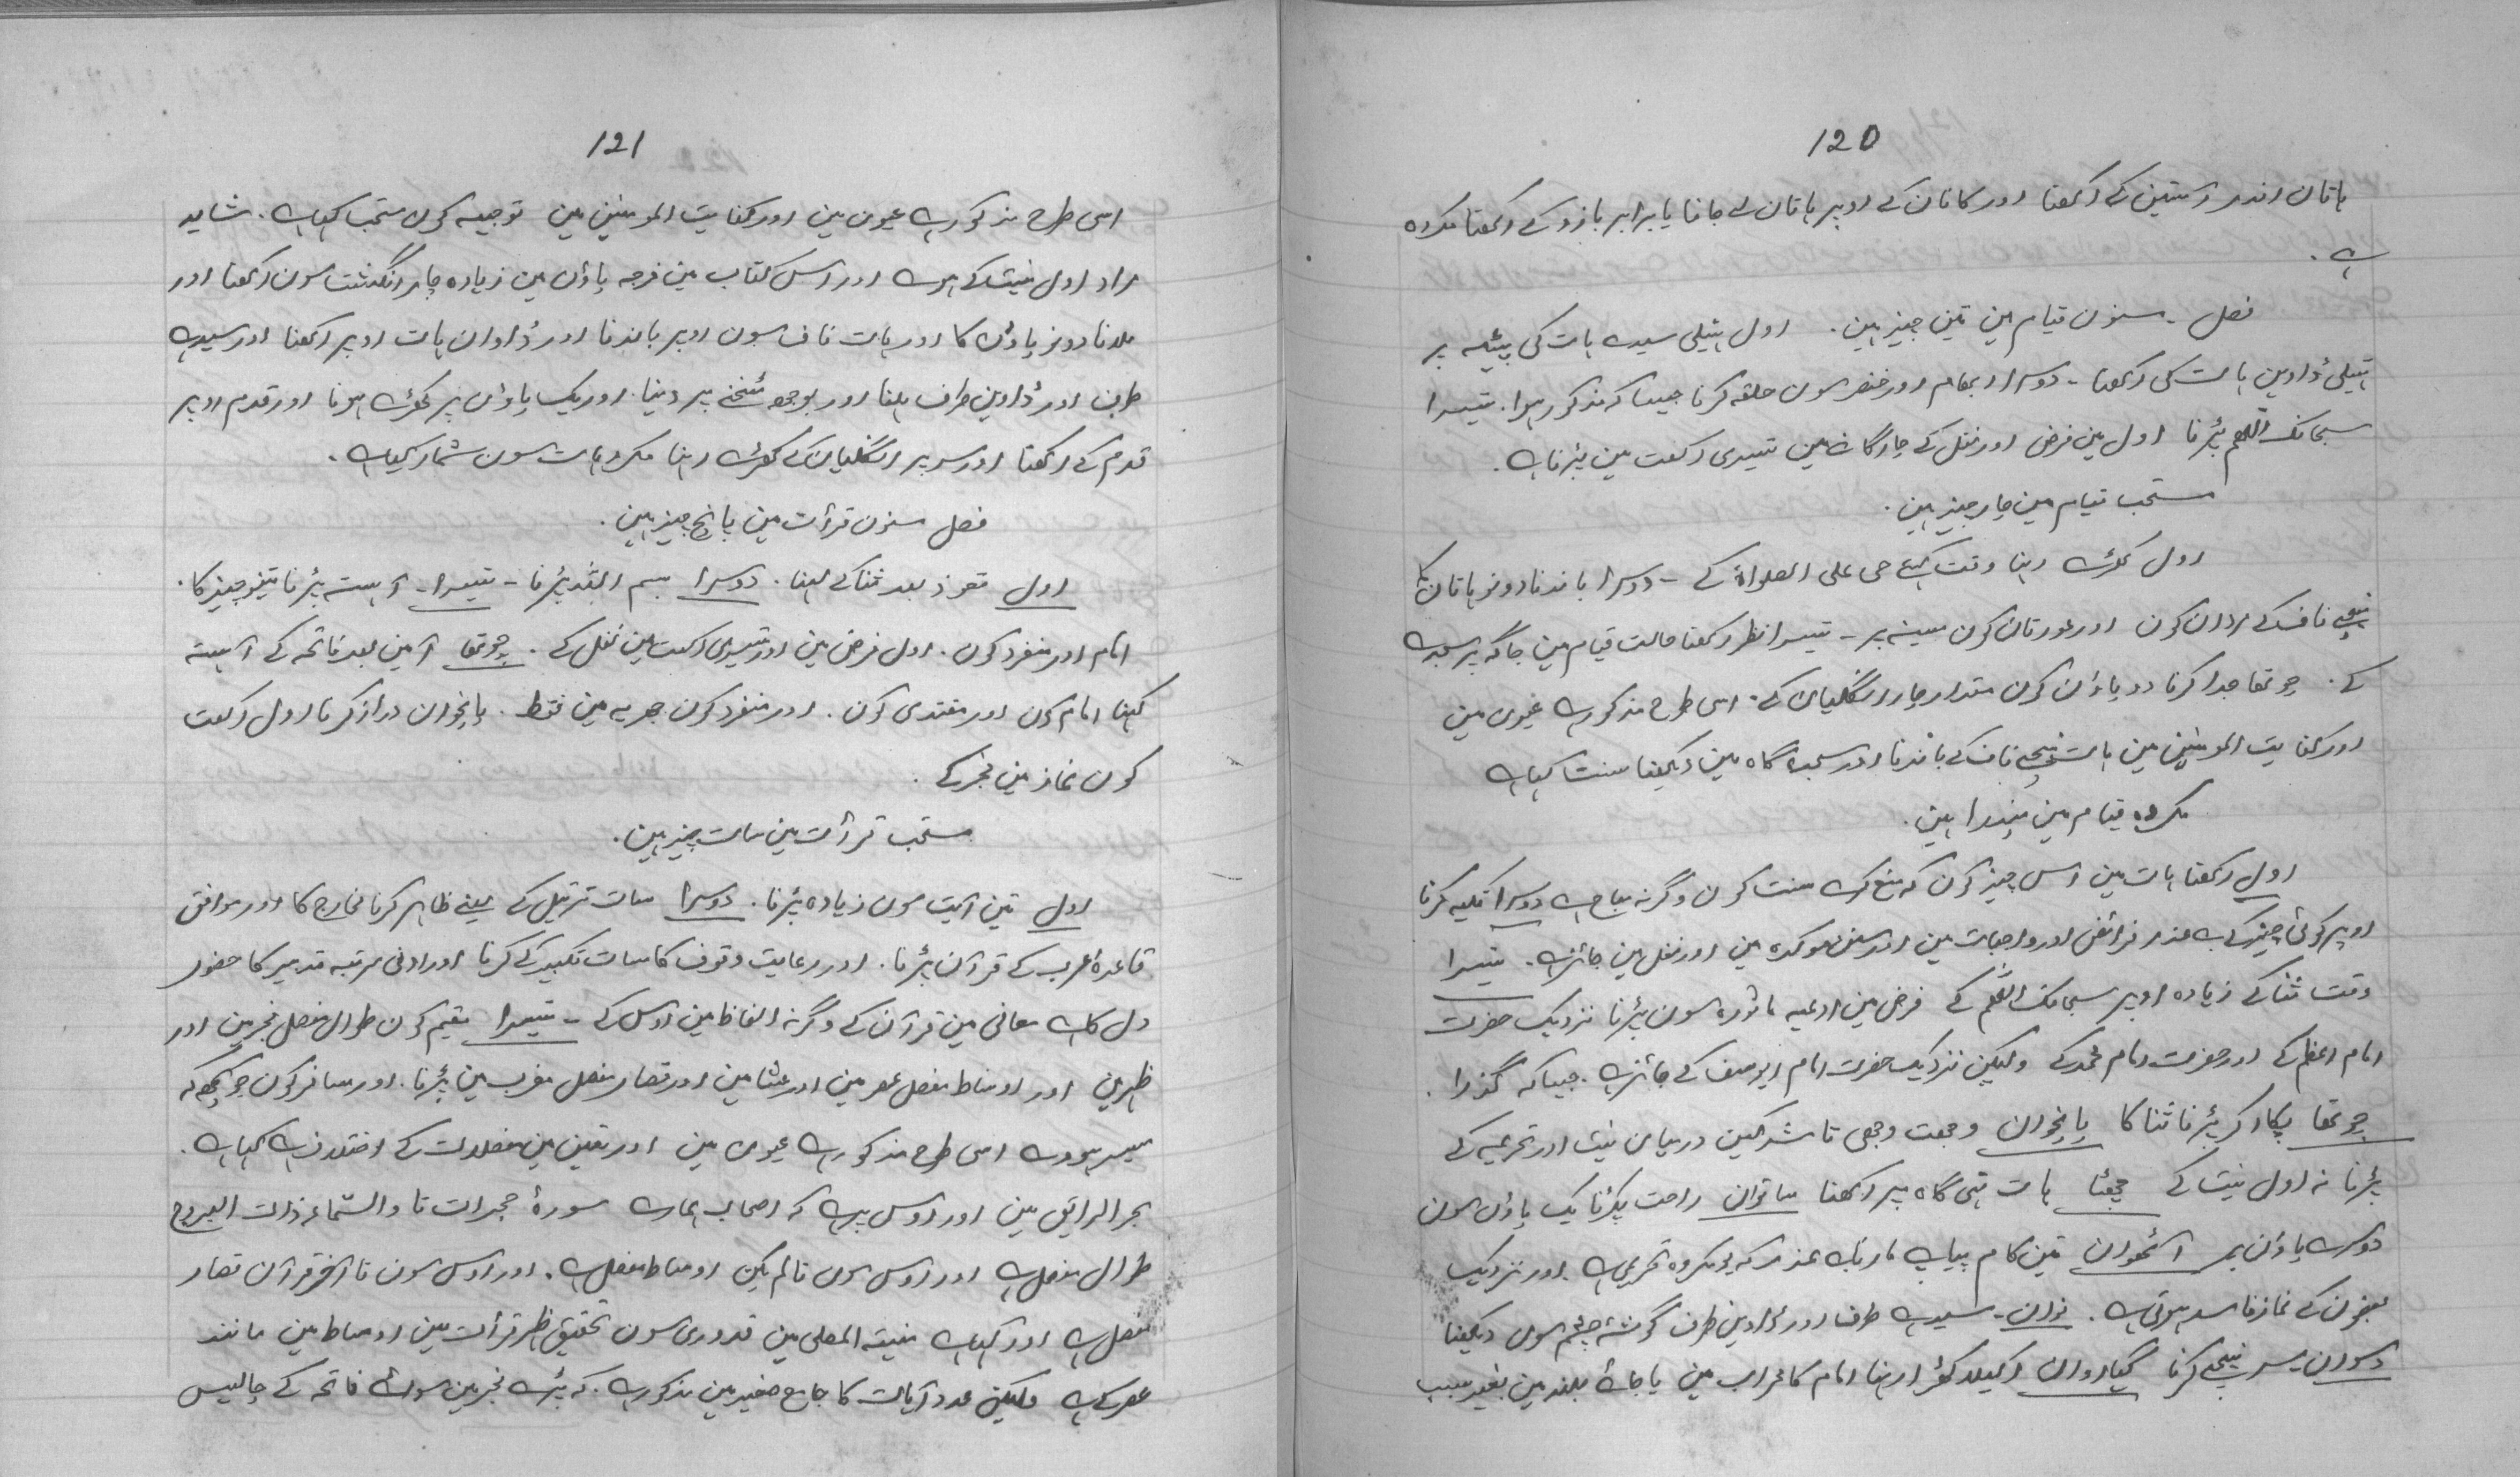 120
ہاتان اندر آستین کے رکھنا اور کانان کے اوپر ہاتان لے جانا یا برابر بازو کے رکھنا مکروہ
ہے۔
فصل۔ مسنون قیام میں تین چیز ہین۔ اول ہتیلی سیدے ہات کی پیٹھ پر
ہتیلی ڈاوین ہات کی رکھنا۔ دوسرا ابہام اور خنصر سون حلقہ کرنا جیسا کہ مذکور ہوا۔ تیسرا
سبحانک اللّٰھم پڑنا اول مین فرض اور نفل کے چارگانہ مین تیسری رکعت مین پڑنا ہے۔
مستحب قیام مین چار چیز ہین۔
اول کھڑے رہنا وقت کہنے حی علی الصلواۃ کے۔ دوسرا باندنا دونو ہاتان کا
نیچے ناف کے مردان کون اور عورتان کون سینہ پر۔ تیسرا نظر رکھنا حالت قیام مین جاگہ پر سجدے
کے۔ چوتھا جدا کرنا دو پاؤن کون مقدار چار انگلیان کے۔ اسی طرح مذکور ہے عیون مین
اور کفایت المومنین مین ہات نیچے ناف کے باندنا اور سجدہ گاہ مین دیکھنا سنت کہا ہے
مکروہ قیام مین پندرا ہین۔
اول رکھنا ہات مین اس چیز کون کہ منع کرے سنت کون وگرنہ مباح ہے دوسرا تکیہ کرنا
اوپر کوئی چیز کے بے عذر فرائض اور واجبات مین اور سنن موکدہ مین اور نفل مین جائز ہے۔ تیسرا
وقت ثنا کے زیادہ اوپر سبحانک اللّٰھم کے فرض مین ادعیہ ماثورہ سون پڑنا نزدیک حضرت
امام اعظم کے اور حضرت امام محمد کے ولیکن نزدیک حضرت امام ابو یوسف کے جائز ہے۔ جیسا کہ گذرا۔
چوتھا پکار کر پڑنا ثنا کا پانچوان وجھت وجھی تا مشرکین درمیان نیت اور تحریمہ کے
پڑنا نہ اول نیت کے چھٹا ہات تہی گاہ پر رکھنا ساتوان راحت پکڑنا یک پاؤن سون
دوسرے پاؤن پر آٹھوان تین کام پیاپے نا ربٹ عذر کہ یو مکروہ تحریمی ہے اور نزدیک
بعضون کے نماز فاسد ہوتی ہے۔ نوان۔ سیدے طرف اور ڈاوین طرف گوشہ چشم سون دیکھنا
دسوان۔ سر نیچے کرنا گیاروان اکیلا کھڑا رہنا امام کا محراب مین یا جائے بلند مین بغیر سبب
121
اسی طرح مذکور ہے عیون مین اور کفایت المومنین مین توجیہ کون مستحب کہا ہے۔ شاید
مراد اول نیت کے ہوے اور اس کتاب مین فرجہ پاؤن مین زیادہ چار انگشت سون رکھنا اور
ملانا دونو پاؤن کا اور ہات ناف سون اوپر باندنا اور ڈاوان ہات اوپر رکھنا اور سیدے
طرف اور ڈاوین طرف ہلنا اور بوجھ ٹخنے پر دینا۔ اور یک پاؤن پر کھڑے ہونا اور قدم اوپر
قدم کے رکھنا اور سر پر انگلیان کے کھڑے رہنا مکروہات سون شمار کیا ہے۔
فصل مسنون قرأت مین پانچ چیز ہین۔
اول تعوذ بعد ثنا کے لینا۔ دوسرا بسم اللّٰہ پڑنا۔ تیسرا۔ آہستہ پڑنا تینو چیز کا۔
امام اور منفرد کون۔ اول فرض مین اور تیسری رکعت مین نفل کے۔ چوتھا آمین بعد فاتحہ کے آہستہ
کہنا امام کون اور مقتدی کون۔ اور منفرد کون جہریہ مین فقط۔ پانچوان دراز کرنا اول رکعت
کون نماز مین فجر کے۔
مستحب قرأت مین سات چیز ہین۔
اول تین آیت سون زیادہ پڑنا۔ دوسرا سات ترتیل کے یعنے ظاہر کرنا مخارج کا اور موافق
قاعدۂ عرب کے قرآن پڑنا۔ اور رعایت وقوف کا سات تکبیر کے کرنا اور ادنی مرتبہ تدبیر کا حضور
دل کا ہے معانی مین قرآن کے وگرنہ الفاظ مین اوس کے۔ تیسرا مقیم کون طوال مفصل فجر مین اور
ظہر مین اور اوساط مفصل عصر مین اور عشا مین اور قصار مفصل مغرب مین پڑنا۔ اور مسافر کون جو کچھ کہ
میسر ہووے اسی طرح مذکور ہے عیون مین اور تعین مین مفصلات کے اختلاف ہے کہا ہے۔
بحر الرایق مین اور اوس پر ہے کہ اصحاب ہمارے سورۂ حجرات تا والسّماء ذات البروج
طوال مفصل ہے اور اوس سون تا لم یکن اوساط مفصل ہے۔ اور اوس سون تا آخر قرآن قصار
مفصل ہے اور کہا ہے منیتہ المصلی مین قدوری سون تحقیق ظہر قرأت مین اوساط مین مانند
عصر کے ہے ولیکن عدد آیات کا جامع صغیر مین مذکور ہے۔ کہ پڑے فجر مین سوائے فاتحہ کے چالیس